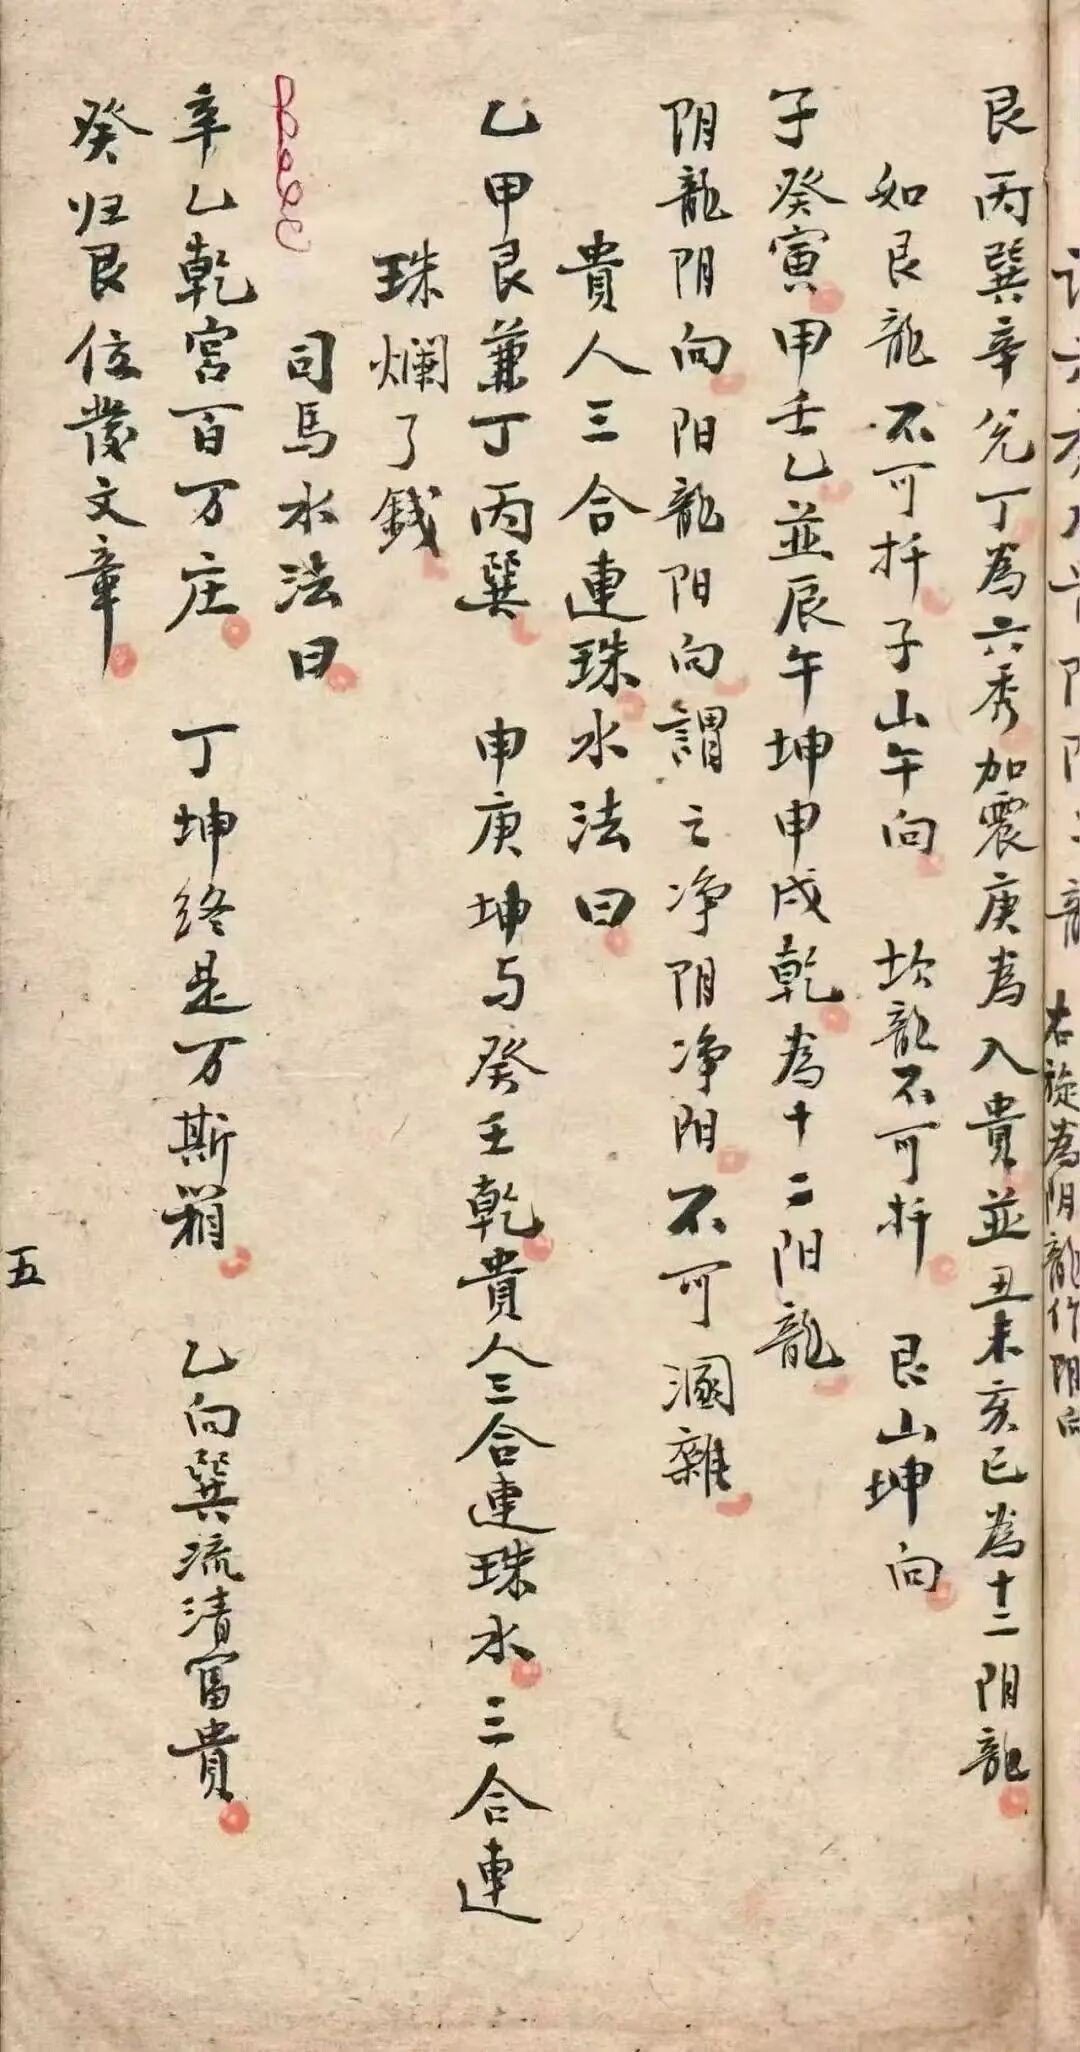 右旋為阴龍作阴向
艮丙巽辛兌丁為六秀加震庚為入貴並丑未亥巳為十二阴龍
如艮龍不可扦子山午向 坎龍不可扦 艮山坤向
子癸寅甲壬乙並辰午坤申戌乾為十二阳龍
阴龍阴向阳龍阳向謂之净阴净阳不可溷雜
貴人三合連珠水法曰
乙甲艮兼丁丙巽 申庚坤与癸壬乾貴人三合連珠水三合連
珠爛了錢
司馬水法曰
辛乙乾宮百万庄 丁坤终是万斯箱 乙向巽流清富貴
癸归艮位發文章
五